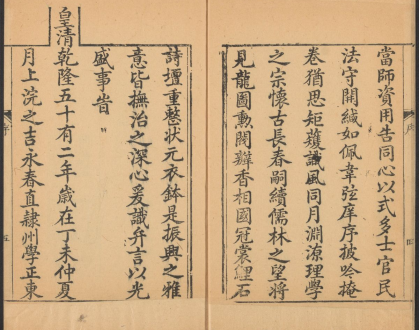 當師資用告同心以式多士官民
法守開緘如佩韋弦庠序披吟掩
卷猶思矩矱識風同月淵源理學
之宗懷古長春嗣續儒林之望將
見龍圖勳閥瓣香相國冠裳鯉石
詩壇重整狀元衣鉢是振興之雅
意皆撫治之深心爰識弁言以光
盛事旹〃
皇清乾隆五十有二年歲在丁未仲夏
月上浣之吉永春直隸州學正東
序
五
四